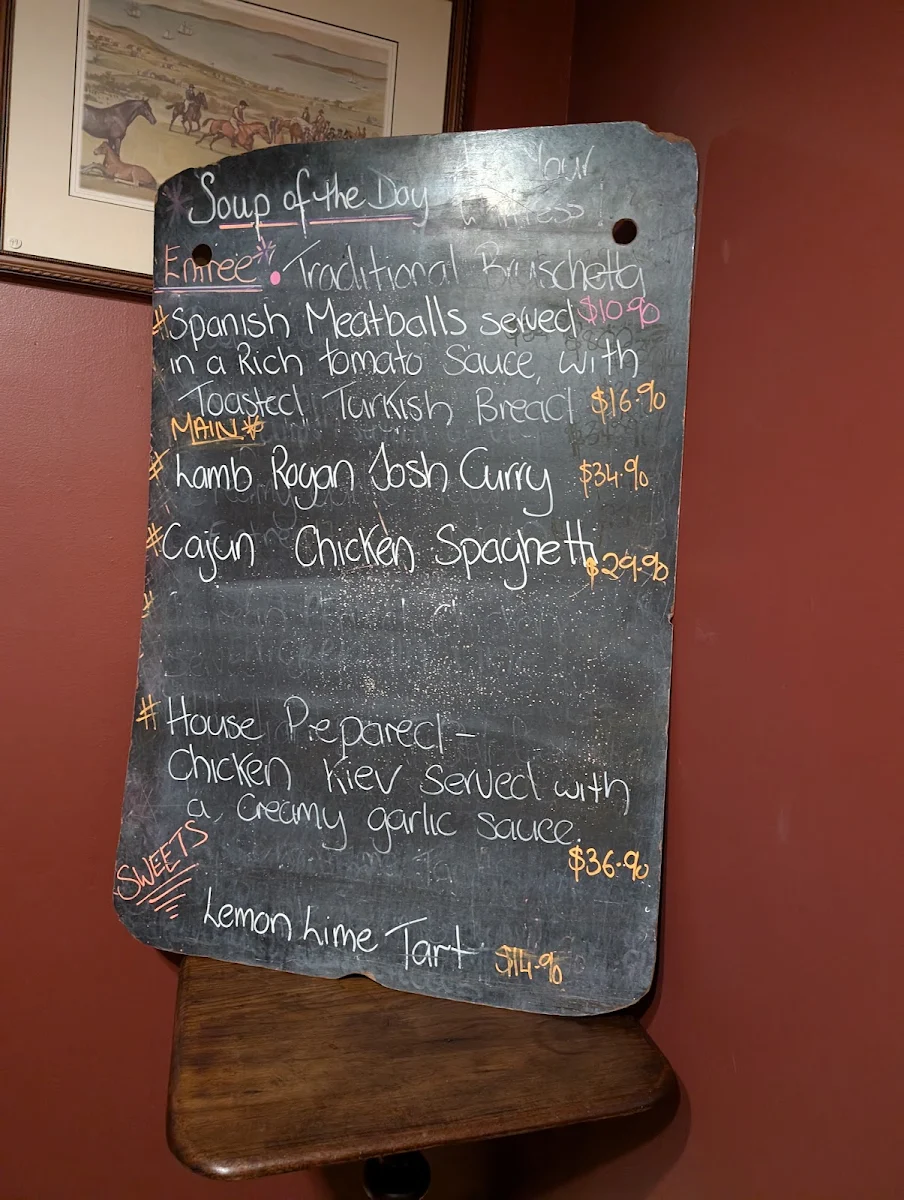 Soup of the Day Your
Entree Traditional Bruschetta
$10.90
# Spanish Meatballs served
in a Rich tomato Sauce, with
Toasted Turkish Bread $16.90
MAIN
# Lamb Rogan Josh Curry $34.90
# Cajun Chicken Spaghetti
$29.90
# House Prepared -
Chicken Kiev served with
a creamy garlic sauce.
$36.90
SWEETS
Lemon Lime Tart $14.90